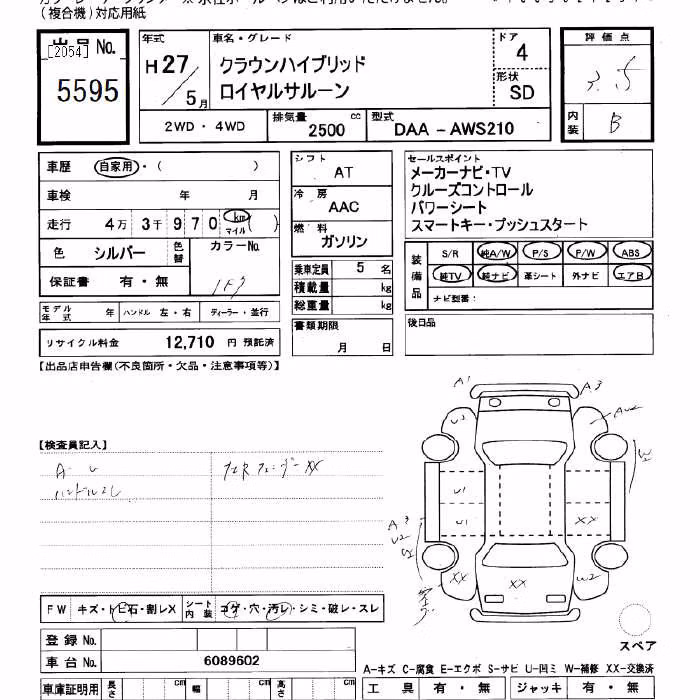 (複合機)対応用紙
出品 No.
[2054]
5595
年式
H27/5月
車名・グレード
クラウンハイブリッド
ロイヤルサルーン
ドア
4
形状
SD
2WD・4WD
排気量 2500 cc
型式 DAA-AWS210
評価点
3.5
内装 B
車歴 自家用・( )
車検 年 月
走行 4万 3千 9 7 0 km マイル ( )
色 シルバー 色替 カラーNo.
1F7
保証書 有・無
モデル年式 年 ハンドル 左・右 ディーラー・並行
リサイクル料金 12,710 円 預託済
シフト
AT
冷房
AAC
燃料
ガソリン
乗車定員 5 名
積載量 kg
総重量 kg
書類期限
月 日
セールスポイント
メーカーナビ・TV
クルーズコントロール
パワーシート
スマートキー・プッシュスタート
装備品
S/R 純A/W P/S P/W ABS
純TV 純ナビ 革シート 外ナビ エアB
ナビ型番:
後日品
【出品店申告欄(不良箇所・欠品・注意事項等)】
【検査員記入】
A・U
ハンドルスレ
XX
A1
A3
U2
U1
U1
XX
A3
U2
XX
XX
W2
FW キズ・トビ石・割レX シート内装 コゲ・穴・汚レ・シミ・破レ・スレ
登録 No.
車台 No. 6089602
車庫証明用 長さ cm 幅 cm 高さ cm
スペア
A-キズ C-腐食 E-エクボ S-サビ U-凹ミ W-補修 XX-交換済
工具 有・無 ジャッキ 有・無